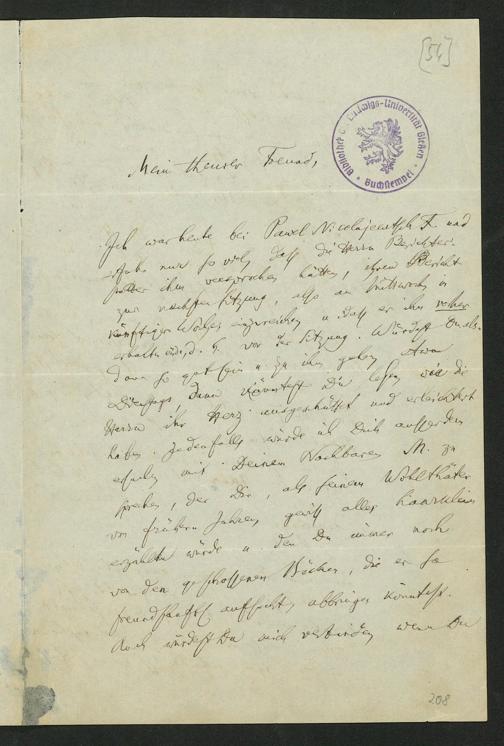 [54]
Bibliothek d. Ludwigs-Universität Gießen
Buchstempel
Mein theurer Freund,
Ich war heute bei Pawel Nicolajewitsch F. und
erfuhr nur so viel, daß die Herrn Berichter-
statter ihm versprochen hätten, ihren Bericht
zur nächsten Sitzung, also am Mittwoch in
künftiger Woche, einzureichen u. daß er ihn vorher
erhalten wird, d. h. vor der Sitzung. Würdest Du als-
dann so gut sein u. zu ihm gehen, etwa
Dienstags, dann könntest Du lesen, wie die
Herrn ihr Herz ausgeschüttet und erleichtert
haben. Jedenfalls würde ich Dich außerdem
ersuchen mit Deinem Nachbaren M. zu
sprechen, der Dir, als seinem Wohlthäter
von frühern Jahren, gewiß alles haarklein
erzählen würde u. den Du immer noch
von den geschossenen Böcken, die er so
freundschaftl. auftischt, abbringen könntest.
Auch würdest Du mich verbinden, wenn Du
208